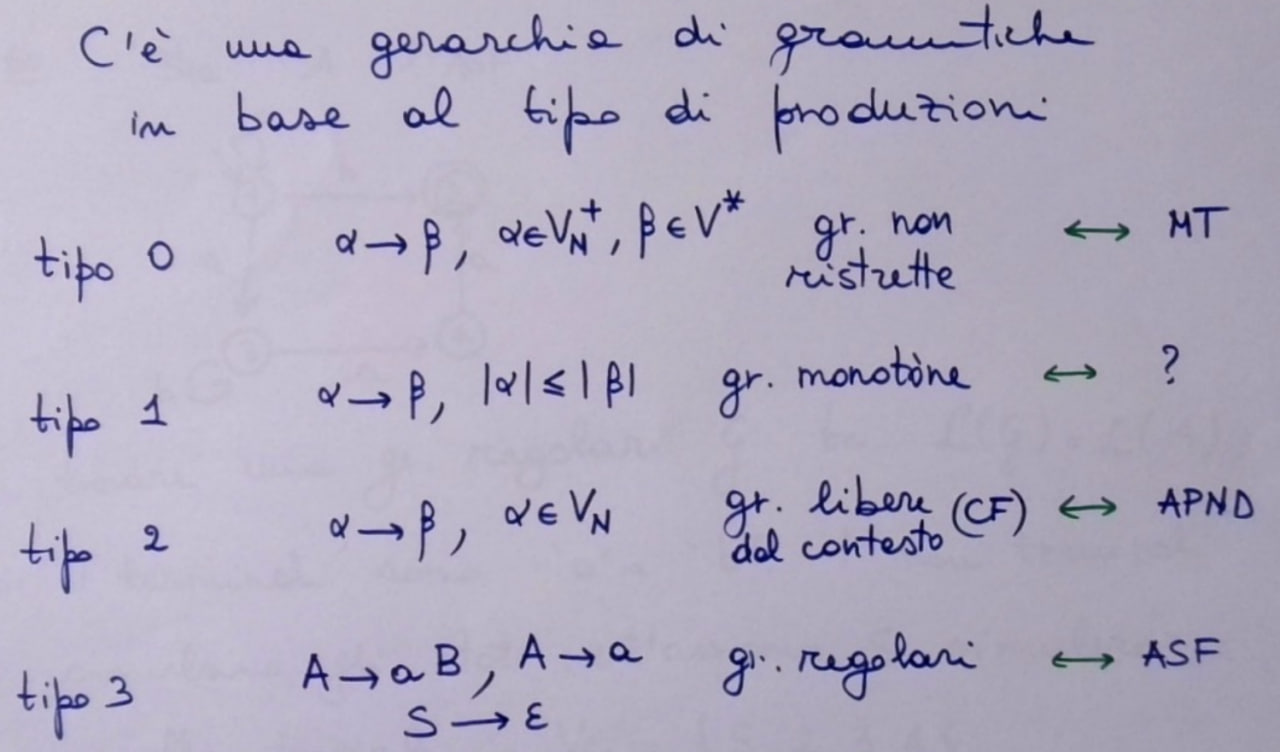 C'è una gerarchia di grammatiche
in base al tipo di produzioni
tipo 0 α → β, α ∈ V_N^+, β ∈ V* gr. non ristrette ↔ MT
tipo 1 α → β, |α| ≤ |β| gr. monotòne ↔ ?
tipo 2 α → β, α ∈ V_N gr. libere dal contesto (CF) ↔ APND
tipo 3 A → aB, A → a gr. regolari ↔ ASF
S → ε